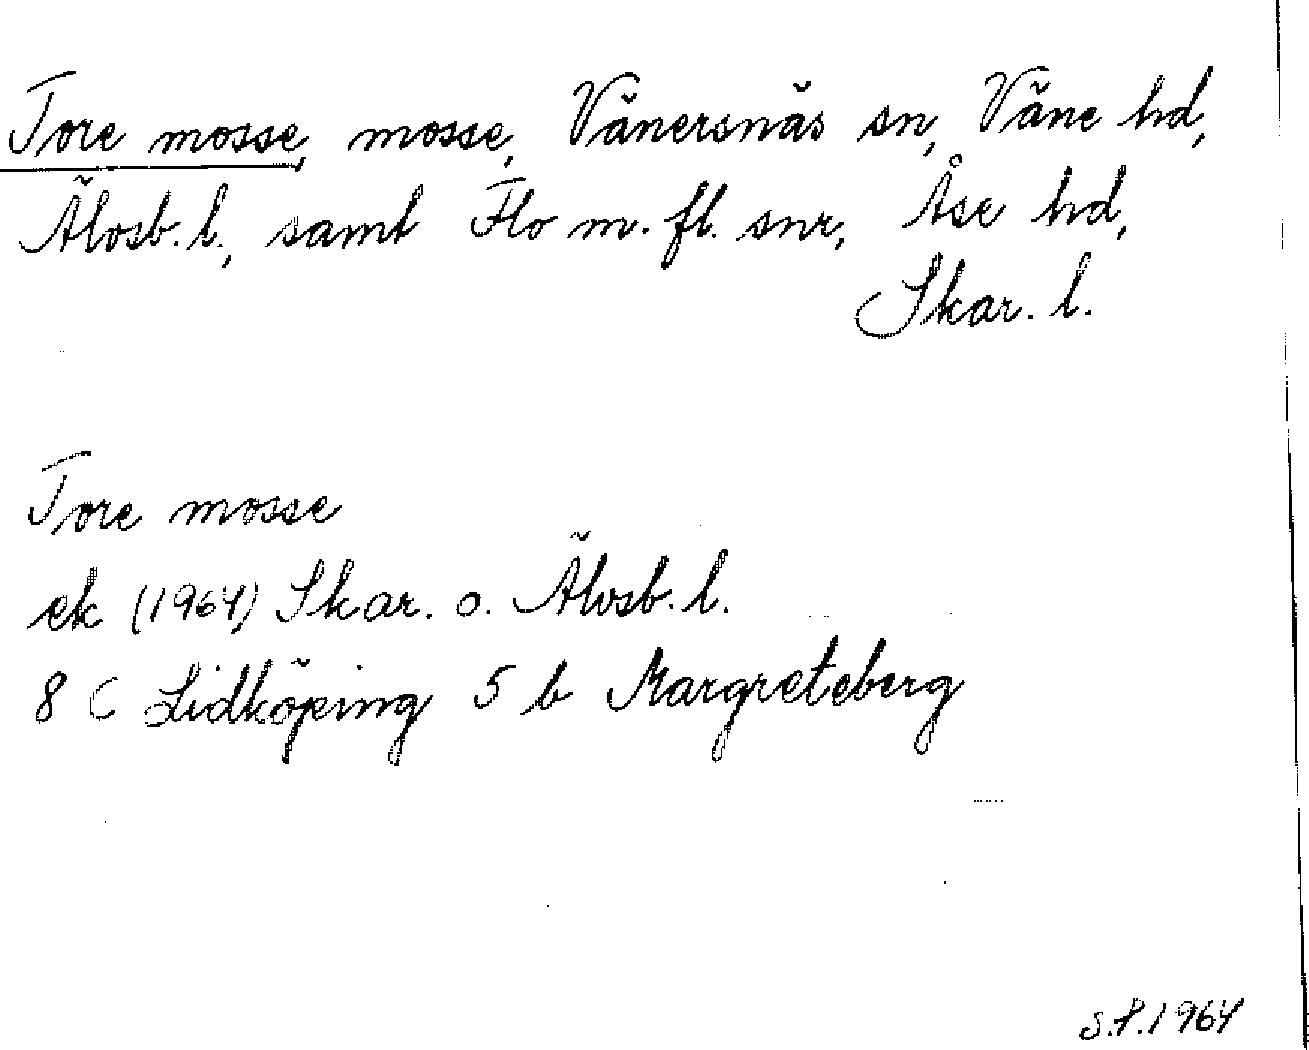 Tore mosse, mosse, Vänersnäs sn, Väne hd,
Älvsb. l., samt Flo m. fl. snr, Åse hd,
Skar. l.
Tore mosse
ek (1964) Skar. o. Älvsb. l.
8 C Lidköping 5 b Margreteberg
S.P. 1964